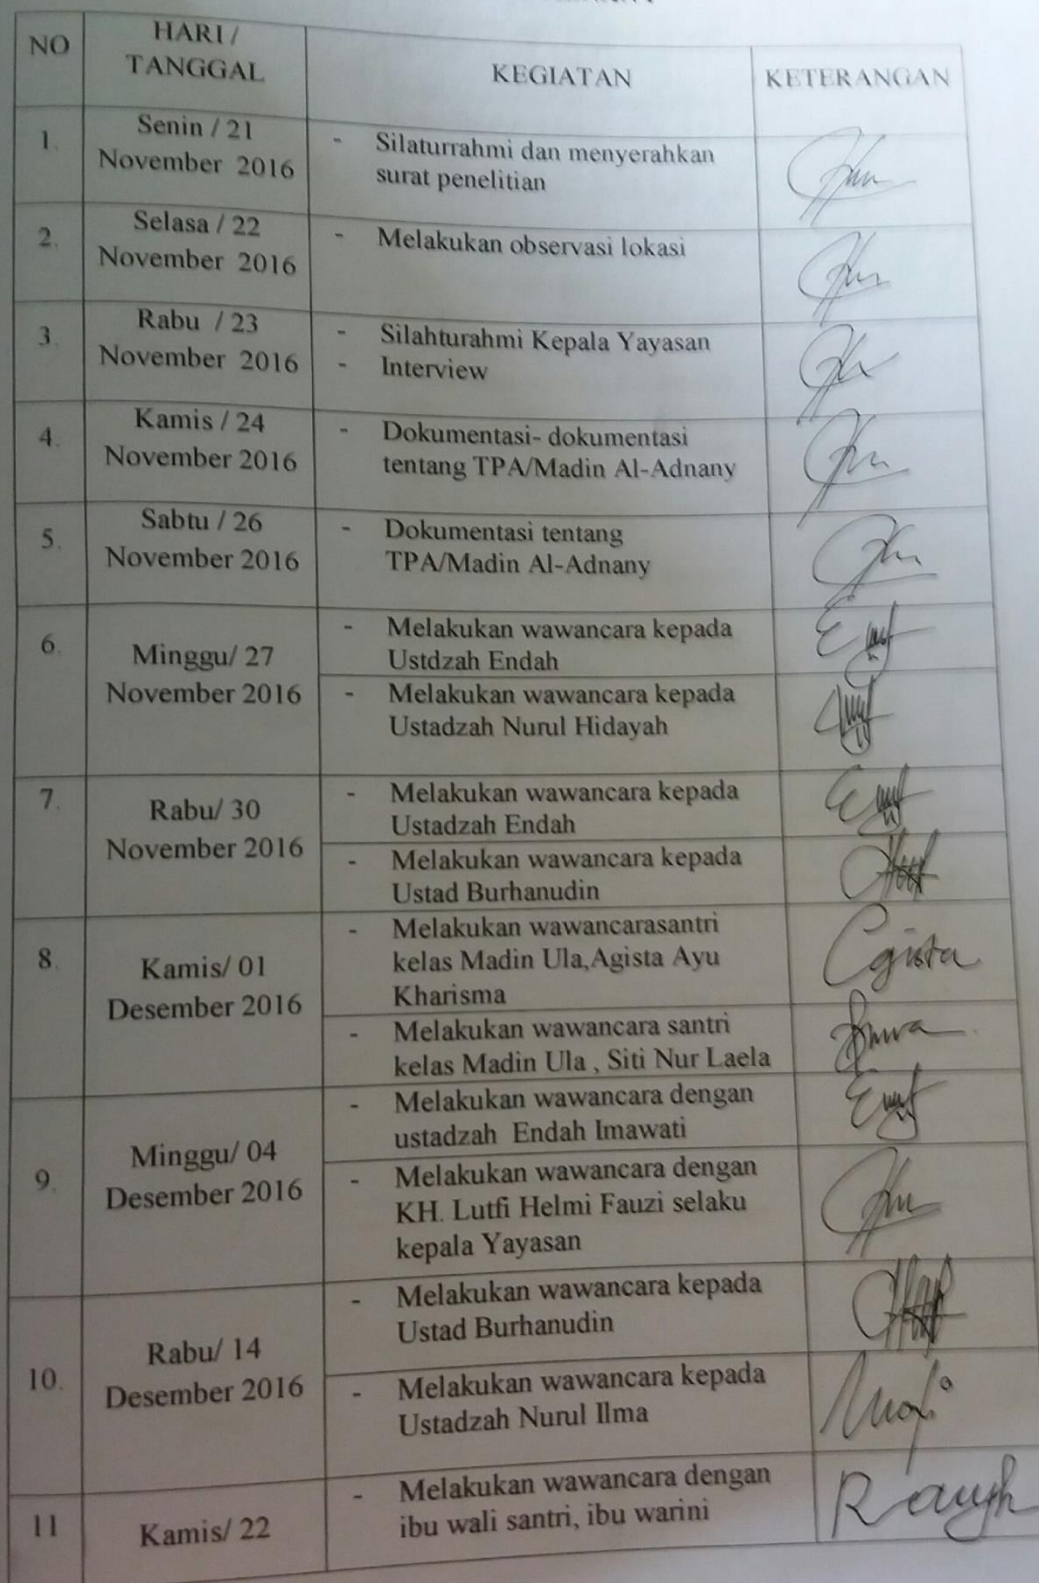 NO
HARI /
TANGGAL
KEGIATAN
KETERANGAN
1.
Senin / 21
November 2016
- Silaturrahmi dan menyerahkan
surat penelitian
2.
Selasa / 22
November 2016
- Melakukan observasi lokasi
3.
Rabu / 23
November 2016
- Silahturahmi Kepala Yayasan
- Interview
4.
Kamis / 24
November 2016
- Dokumentasi- dokumentasi
tentang TPA/Madin Al-Adnany
5.
Sabtu / 26
November 2016
- Dokumentasi tentang
TPA/Madin Al-Adnany
6.
Minggu/ 27
November 2016
- Melakukan wawancara kepada
Ustdzah Endah
- Melakukan wawancara kepada
Ustadzah Nurul Hidayah
7.
Rabu/ 30
November 2016
- Melakukan wawancara kepada
Ustadzah Endah
- Melakukan wawancara kepada
Ustad Burhanudin
8.
Kamis/ 01
Desember 2016
- Melakukan wawancarasantri
kelas Madin Ula,Agista Ayu
Kharisma
- Melakukan wawancara santri
kelas Madin Ula , Siti Nur Laela
9.
Minggu/ 04
Desember 2016
- Melakukan wawancara dengan
ustadzah Endah Imawati
- Melakukan wawancara dengan
KH. Lutfi Helmi Fauzi selaku
kepala Yayasan
10.
Rabu/ 14
Desember 2016
- Melakukan wawancara kepada
Ustad Burhanudin
- Melakukan wawancara kepada
Ustadzah Nurul Ilma
11
Kamis/ 22
- Melakukan wawancara dengan
ibu wali santri, ibu warini